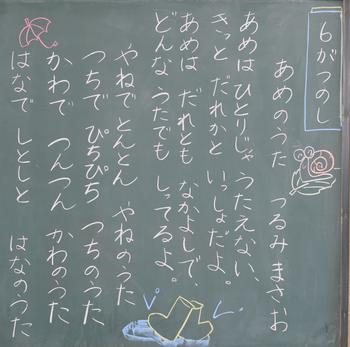 6がつのし
あめのうた　つるみまさお
あめはひとりじゃ うたえない、
きっと だれかと いっしょだよ。
あめは だれとも なかよしで、
どんな うたでも しってるよ。
やねでとんとん やねのうた
つちで ぴちぴち つちのうた
かわで つんつん かわのうた
はなで しとしと はなのうた